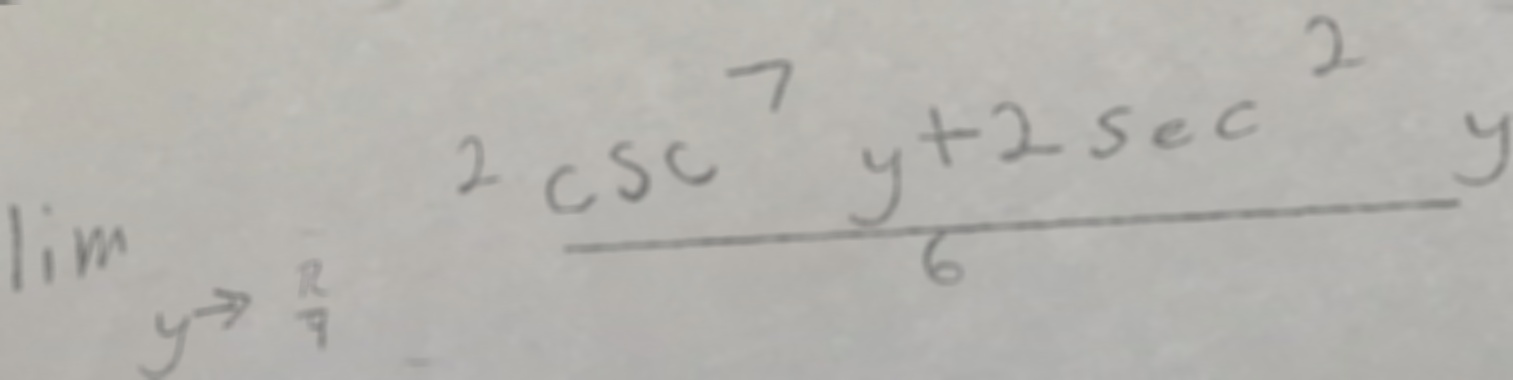 lim y→ 2 csc^7 y + 2 sec^2 y / 6